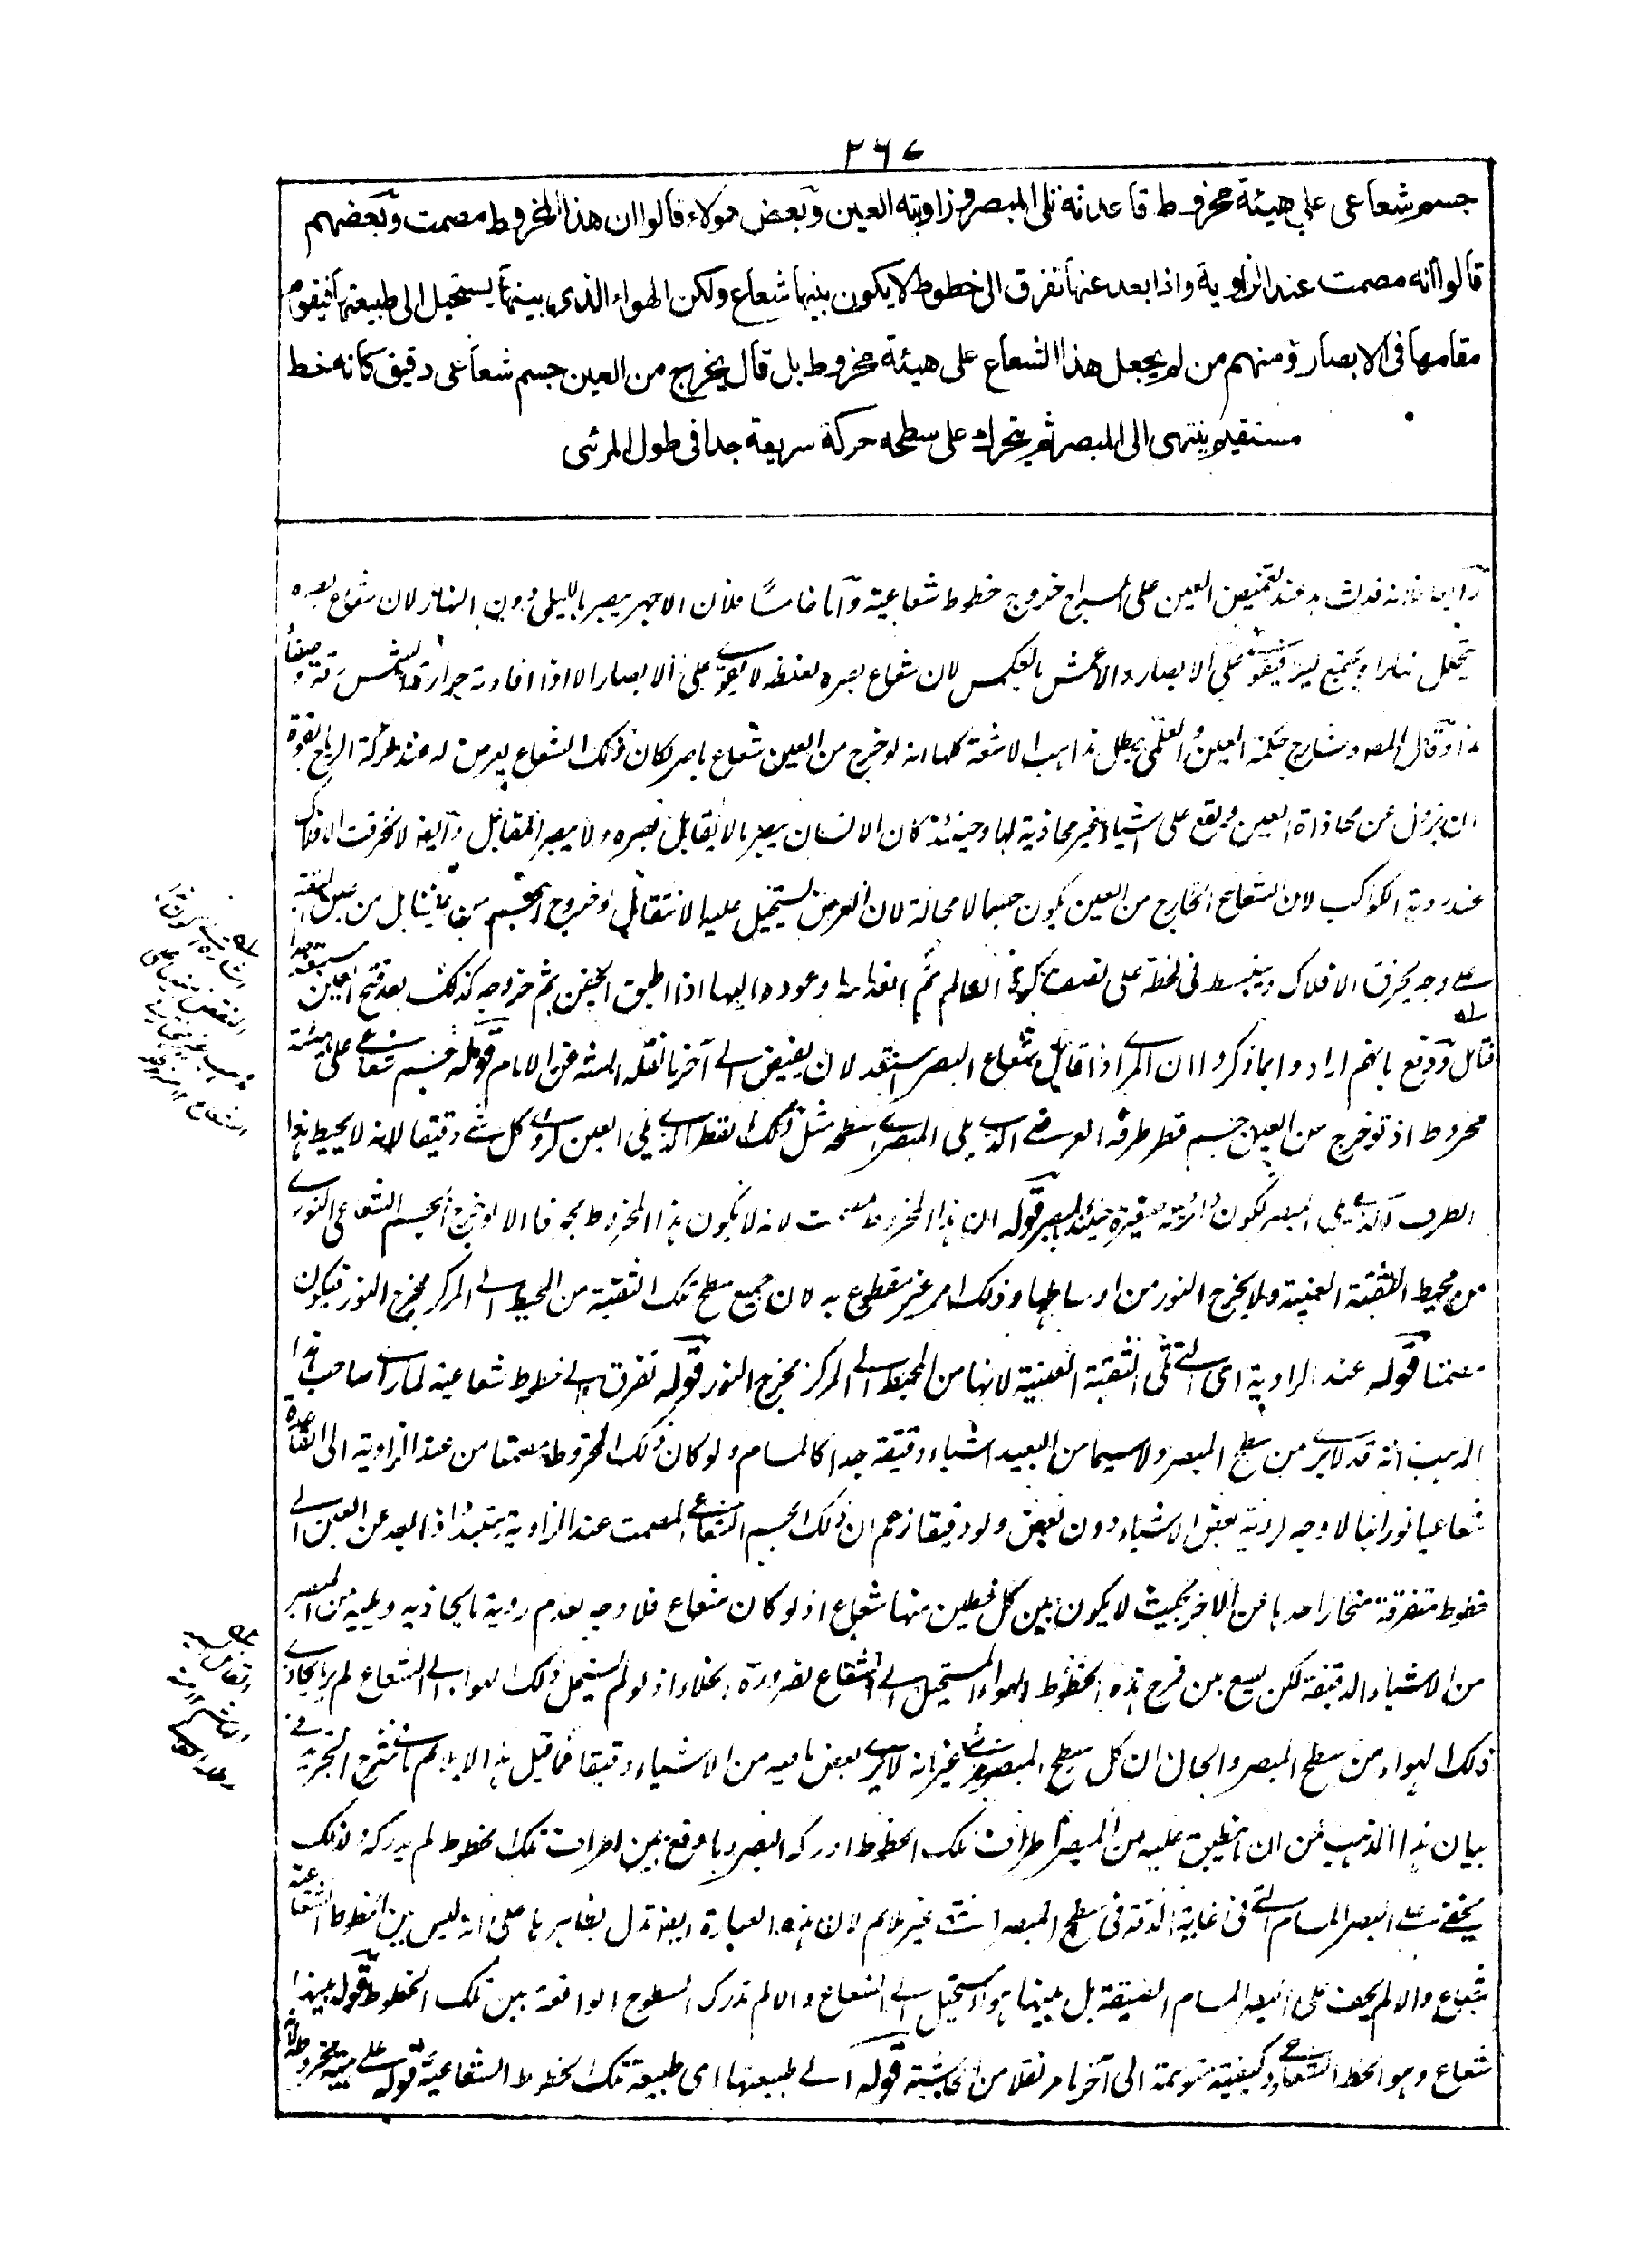 ٢٦٧
جسم شعاعى على هيئة مخروط قاعدته تلى المبصر وزاويته العين وبعض هؤلاء قالوا ان هذا المخروط مصمت وبعضهم
قالوا انه مصمت عند الزاوية واذا بعد عنها تفرق الى خطوط لا يكون بينها شعاع ولكن الهواء الذى بينها يستحيل الى طبيعتها فيقوم
مقامها فى الابصار ومنهم من لم يجعل هذا الشعاع على هيئة مخروط بل قال يخرج من العين جسم شعاعى دقيق كأنه خط
مستقيم ينتهى الى المبصر ثم يتحرك على سطحه حركة سريعة جدا فى طول المرئى
عند تغميض العين على السراج خروج خطوط شعاعية وأما خامسا فلأن الاجهر يبصر بالليل دون النهار لان شعاع بصره
يتحلل نهارا ويجتمع ليلا فيقوى على الابصار والاعمش بالعكس لان شعاع بصره لغلظه لا يقوى على الابصار الا اذا افادته حرارة الشمس رقة وصفاء
هذا وقال المصـ وشارح حكمة العين والعلمى يبطل مذاهب الاشعة كلها انه لو خرج من العين شعاع باصر لكان ذلك الشعاع يعرض له عند حركة الرياح القوية
ان يزول عن محاذاة العين ويقع على اشياء غير محاذية لها وحينئذ كان الانسان يبصر ما لا يقابل بصره ولا يبصر المقابل وايضا لانخرقت الافلاك
عند روية الكواكب لان الشعاع الخارج من العين يكون جسما لا محالة لان العرض يستحيل عليه الانتقال وخروج الجسم من
على وجه يخرق الافلاك وينبسط فى لحظة على نصف كرة العالم ثم وعوده اليها اذا اطبق الجفن ثم خروجه كذلك بعد فتح العين
قائل ودفع بانهم ارادوا بما ذكروا ان المرئى اذا قابل شعاع البصر استعد لان يفيض الى آخر ما نقله المشـ عن الامام قوله جسم شعاعى على هيئة
مخروط اذ لو خرج من العين جسم قطر طرفه العرضى الذى يلى المبصر مثل ذلك القطر الذى يلى العين لرؤى كل شئ دقيقا لانه لا يحيط بهذا
الطرف الذى يلى المبصر لكون دائرته صغيرة حينئذ المبصر قوله ان هذا المخروط مصمت لانه لا يكون هذا المخروط مجوفا الا لو خرج الجسم الشعاعى النورى
من محيط الثقبة العنبية ولا يخرج النور من اوساطها وذلك امر غير مقطوع به لان جميع سطح تلك الثقبة من المحيط الى المركز مخرج النور فيكون
مصمتا قوله عند الزاوية اى التى تلى الثقبة العنبية لانها من المحيط الى المركز مخرج النور قوله تفرق الى خطوط شعاعية لما رأى صاحب هذا
المذهب انه قد لا يرى من سطح المبصر ولا سيما من البعيد اشياء دقيقة جدا كالمسام ولو كان ذلك المخروط مصمتا من عند الزاوية الى القاعدة
شعاعيا نورانيا لا وجه لروية بعض الاشياء دون بعض ولو دقيقا زعم ان ذلك الجسم الشعاعى المصمت عند الزاوية يتبدد اذا ابعد عن العين الى
خطوط متفرقة منحاز احدها عن الاخر بحيث لا يكون بين كل خطين منها شعاع اذ لو كان شعاع فلا وجه لعدم روية ما يحاذيه ويليه من المبصر
من الاشياء الدقيقة لكن يسع بين فرج هذه الخطوط الهواء المستحيل الى الشعاع لضرورة الخلاء اذ لو لم يستحل ذلك الهواء الى الشعاع لم ير ما يحاذى
ذلك الهواء من سطح المبصر والحال ان كل سطح المبصر غير انه لا يرى بعض ما فيه من الاشياء دقيقا فما قيل هذا لا يلائم
بيان هذا المذهب من ان ما ينطبق عليه من المبصر اطراف تلك الخطوط ادركه البصر وما وقع بين اطراف تلك الخطوط لم يدركه لذلك
يخفى على البصر المسام التى فى غاية الدقة فى سطح المبصرات غير ملائم لان هذه العبارة ايضا تدل بظاهرها على انه ليس بين الخطوط الشعاعية
شعاع والا لم يخف على البصر المسام الضيقة بل بينها هواء مستحيل الى الشعاع والا لم تدرك السطوح الواقعة بين تلك الخطوط قوله بينها
شعاع وهو الخط الشعاعى وكيفية متوهمة الى آخر ما مر نقلا من الحاشية قوله الى طبيعتها اى طبيعة تلك الخطوط الشعاعية قوله على هيئة مخروط